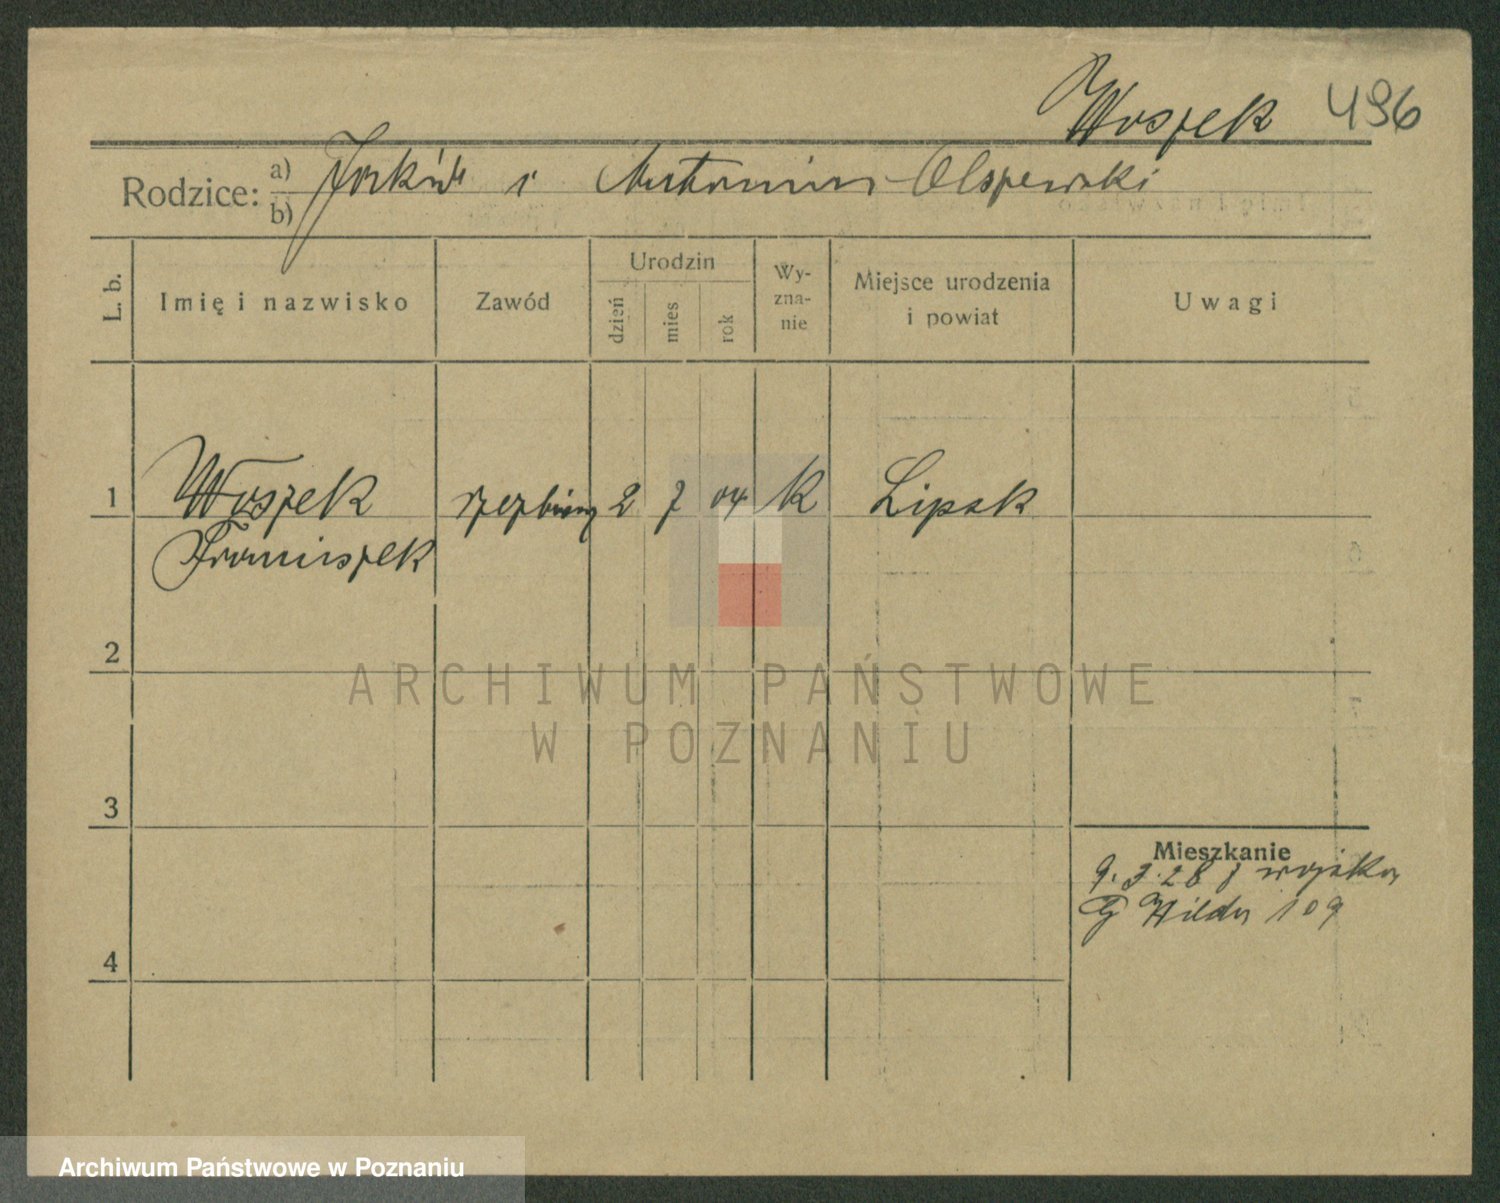 Woszek 496
Rodzice: a) b) i Antonina Olszewski
L. b.
Imię i nazwisko
Zawód
Urodzin
dzień
mies
rok
Wy-
zna-
nie
Miejsce urodzenia
i powiat
Uwagi
1 Woszek 2 7 04 K Lipsk
Franciszek
2
3
4
Mieszkanie
9.3.28 z wojska
G Wilda 109
ARCHIWUM PAŃSTWOWE
W POZNANIU
Archiwum Państwowe w Poznaniu